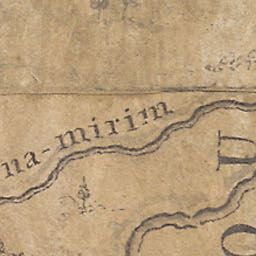 na-mirim
U
O